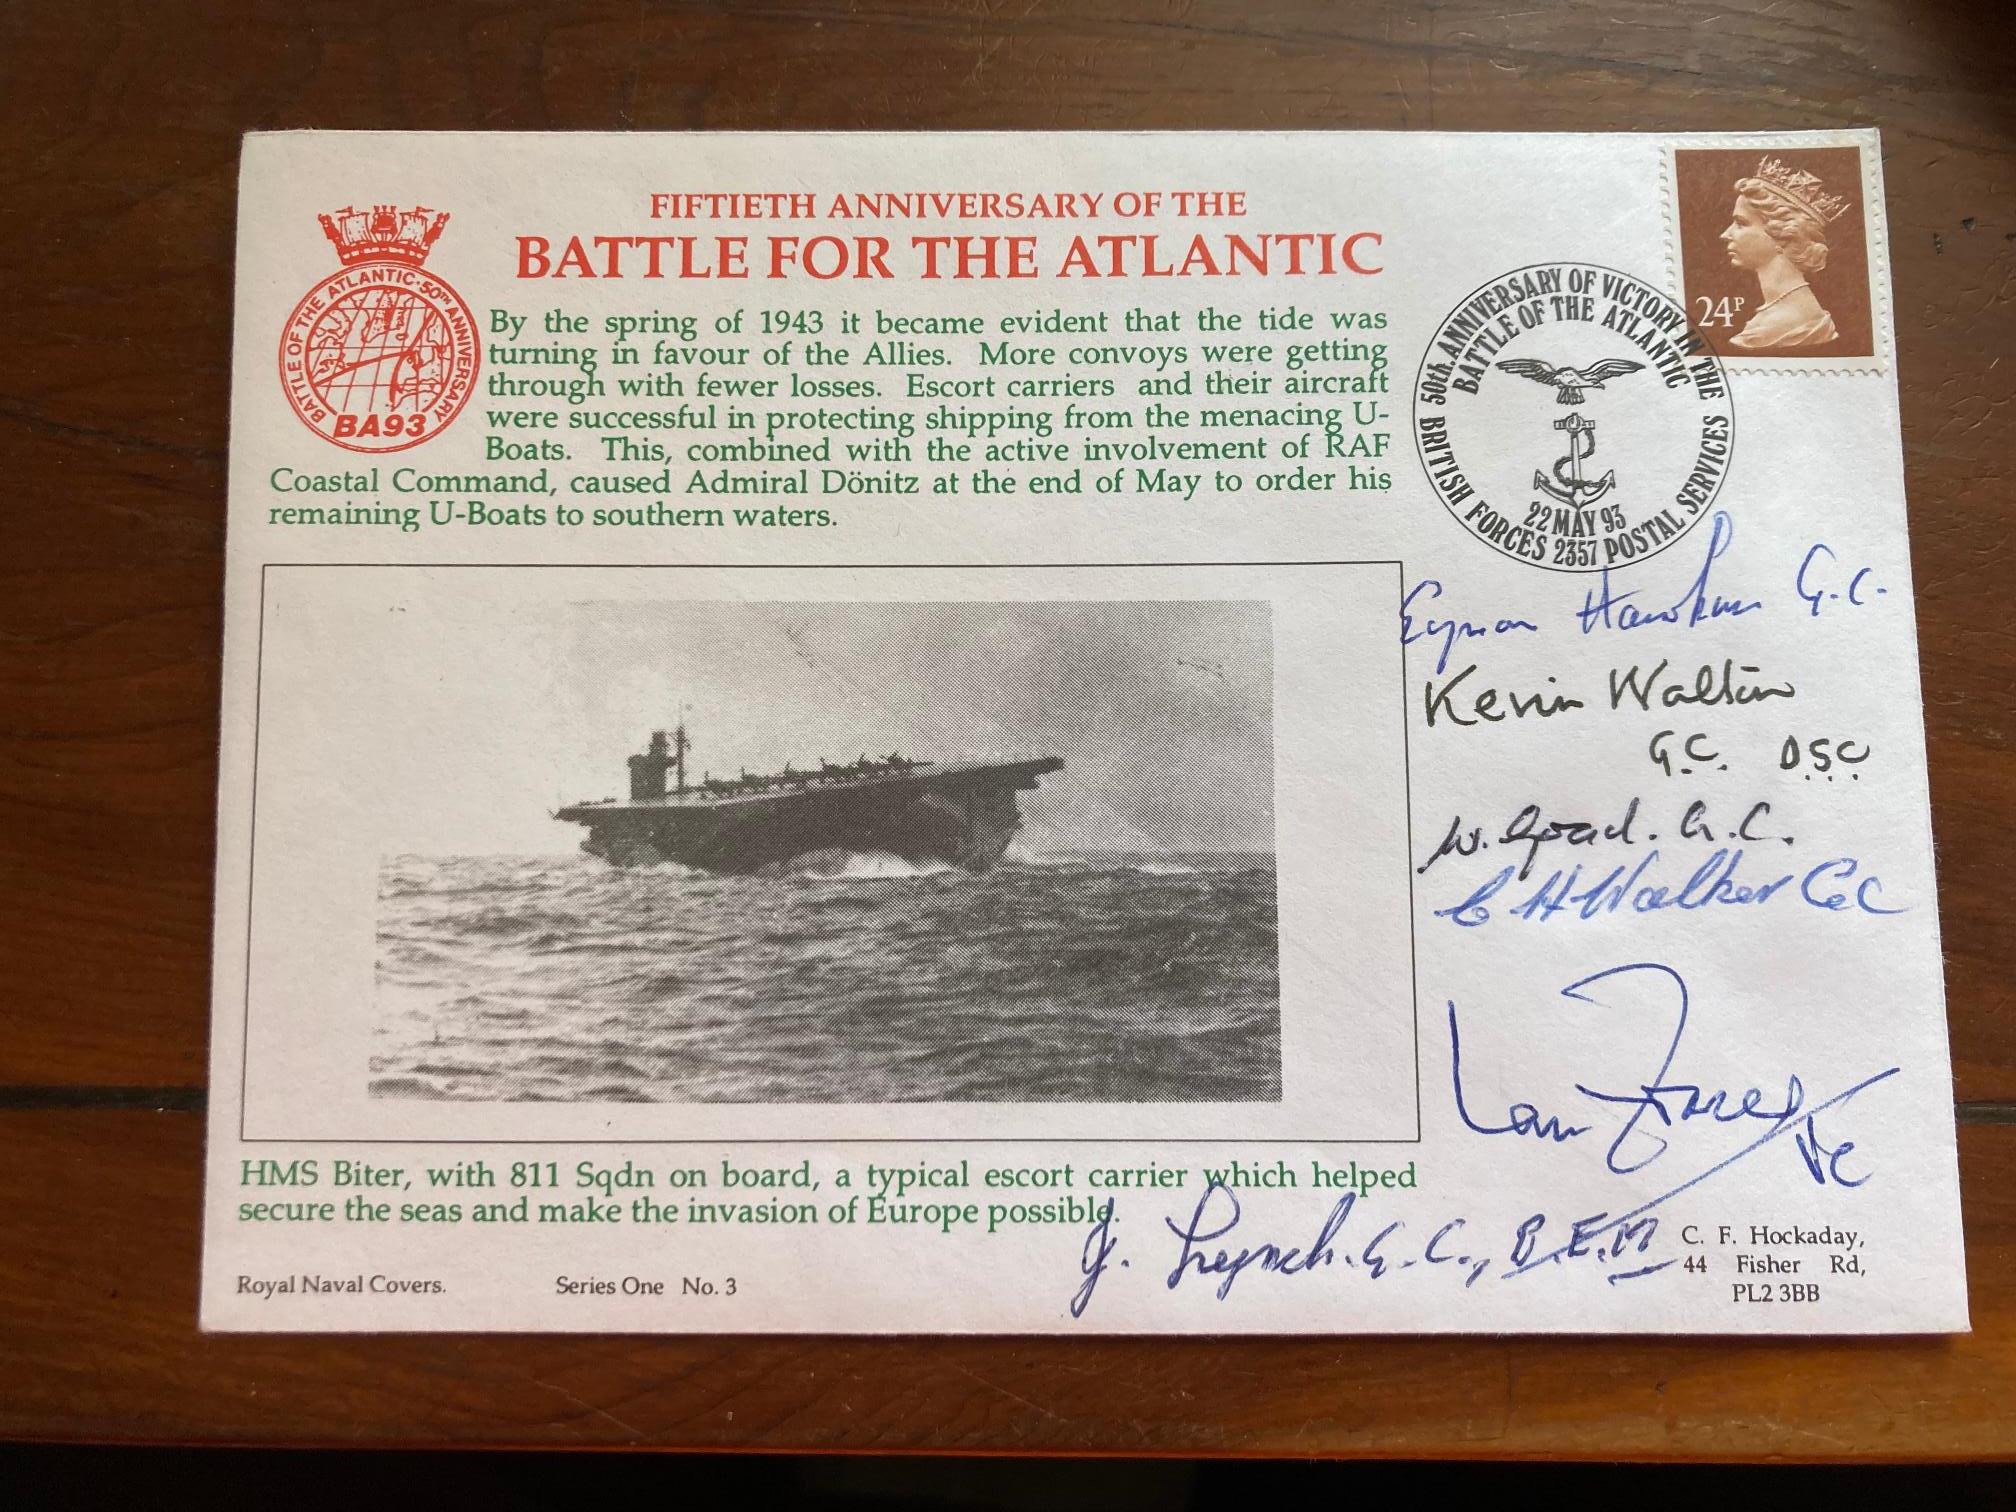 FIFTIETH ANNIVERSARY OF THE
BATTLE FOR THE ATLANTIC
BATTLE OF THE ATLANTIC·50TH ANNIVERSARY
BA93
By the spring of 1943 it became evident that the tide was
turning in favour of the Allies. More convoys were getting
through with fewer losses. Escort carriers and their aircraft
were successful in protecting shipping from the menacing U-
Boats. This, combined with the active involvement of RAF
Coastal Command, caused Admiral Dönitz at the end of May to order his
remaining U-Boats to southern waters.
24P
50th. ANNIVERSARY OF VICTORY IN THE
BATTLE OF THE ATLANTIC
22 MAY 93
BRITISH FORCES 2357 POSTAL SERVICES
Eynon Hawkins G.C.
Kevin Walton
G.C. D.S.C.
W. Goad. G.C.
C H Walker GC
Ian Fraser
VC
HMS Biter, with 811 Sqdn on board, a typical escort carrier which helped
secure the seas and make the invasion of Europe possible.
J. Lynch. G.C., B.E.M
Royal Naval Covers. Series One No. 3
C. F. Hockaday,
44 Fisher Rd,
PL2 3BB